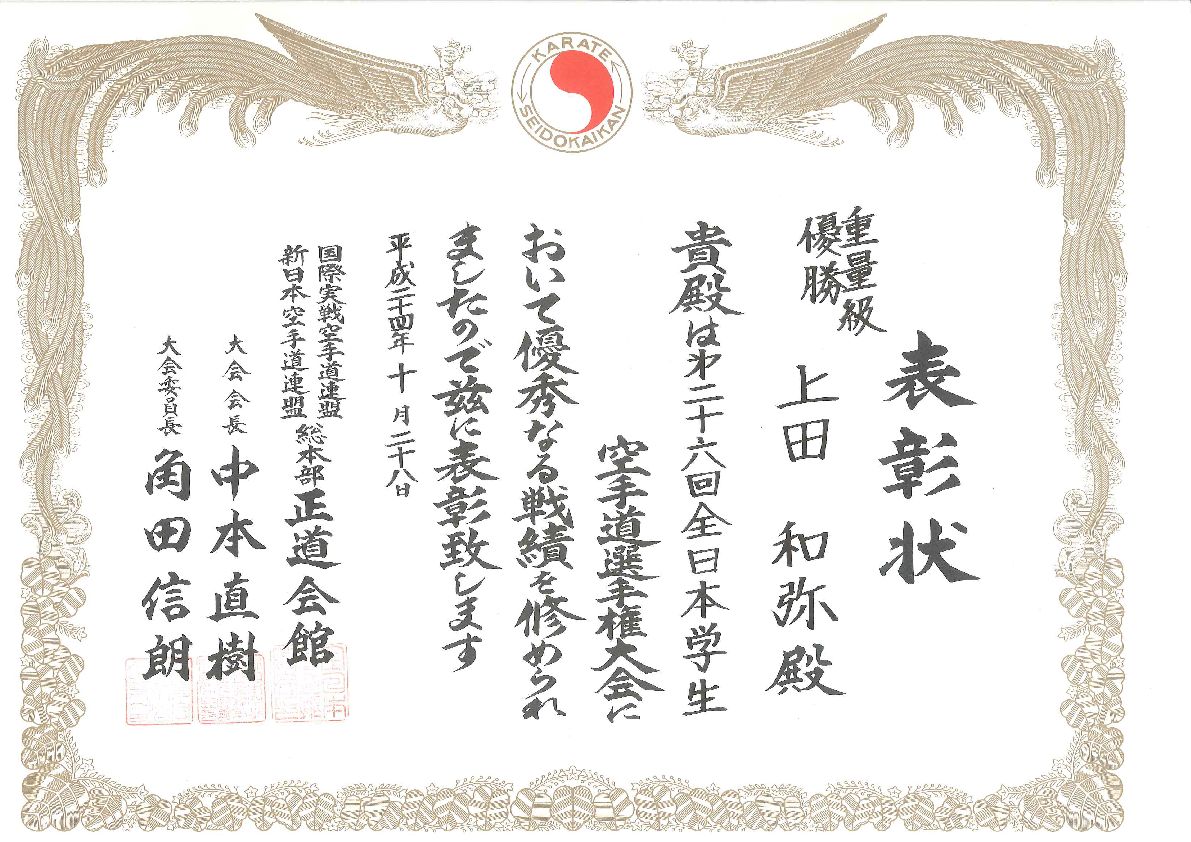 KARATE
SEIDOKAIKAN
表彰状
重量級
優勝
上田 和弥殿
貴殿は第二十六回全日本学生
空手道選手権大会に
おいて優秀なる戦績を修められ
ましたので玆に表彰致します
平成二十四年十月二十八日
国際実戦空手道連盟
新日本空手道連盟
総本部 正道会館
大会会長 中本直樹
大会委員長 角田信朗